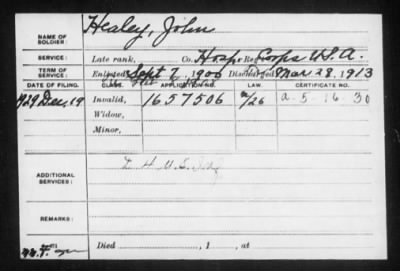 NAME OF SOLDIER: Healey, John
SERVICE: Late rank, Co. Hosp Reg Corps U.S.A.
TERM OF SERVICE: Enlisted Sept 7, 1906 Discharged Mar 28, 1913
DATE OF FILING. CLASS. APPLICATION NO. LAW. CERTIFICATE NO.
1929 Dec. 19 Invalid, 1657506 a-5-16-30
Widow,
Minor,
ADDITIONAL SERVICES:
REMARKS:
Died , 1 , at